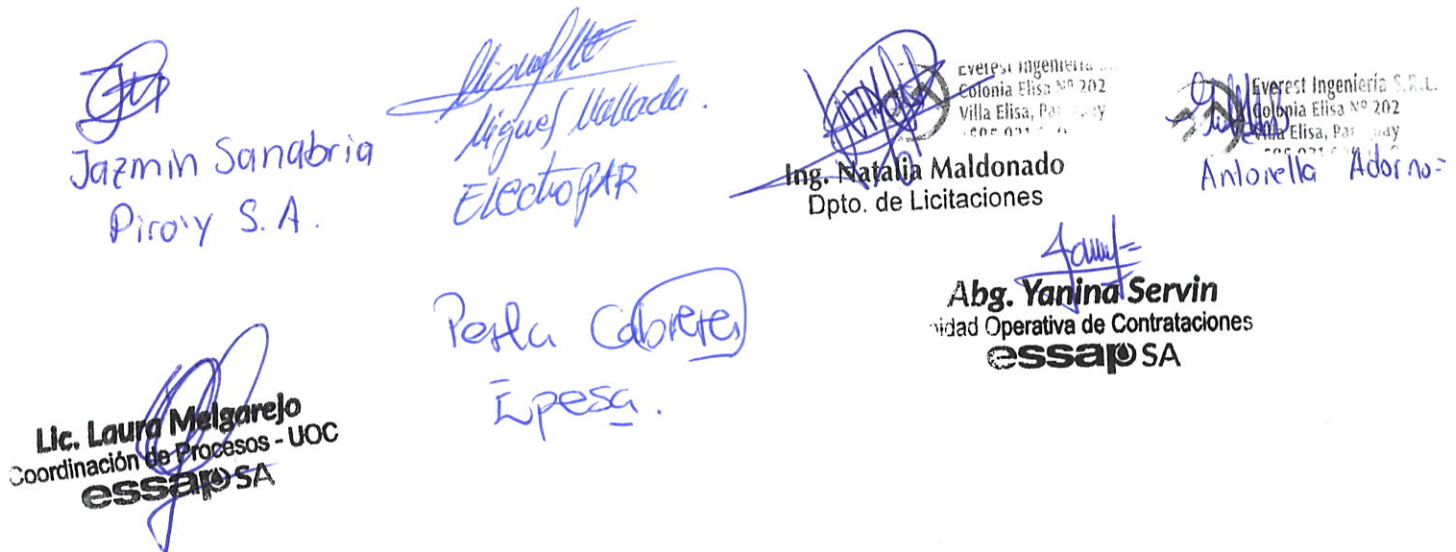 Jazmin Sanabria
Piroy S.A.
Miguel
ElectroPAR
Everest Ingeniería
Colonia Elisa Nº 202
Villa Elisa,
Ing. Natalia Maldonado
Dpto. de Licitaciones
Everest Ingeniería S.R.L.
Colonia Elisa Nº 202
Villa Elisa,
Antonella Adorno=
Abg. Yanina Servin
nidad Operativa de Contrataciones
essap SA
Perla
Epesa.
Lic. Laura Melgarejo
Coordinación de Procesos - UOC
essap SA